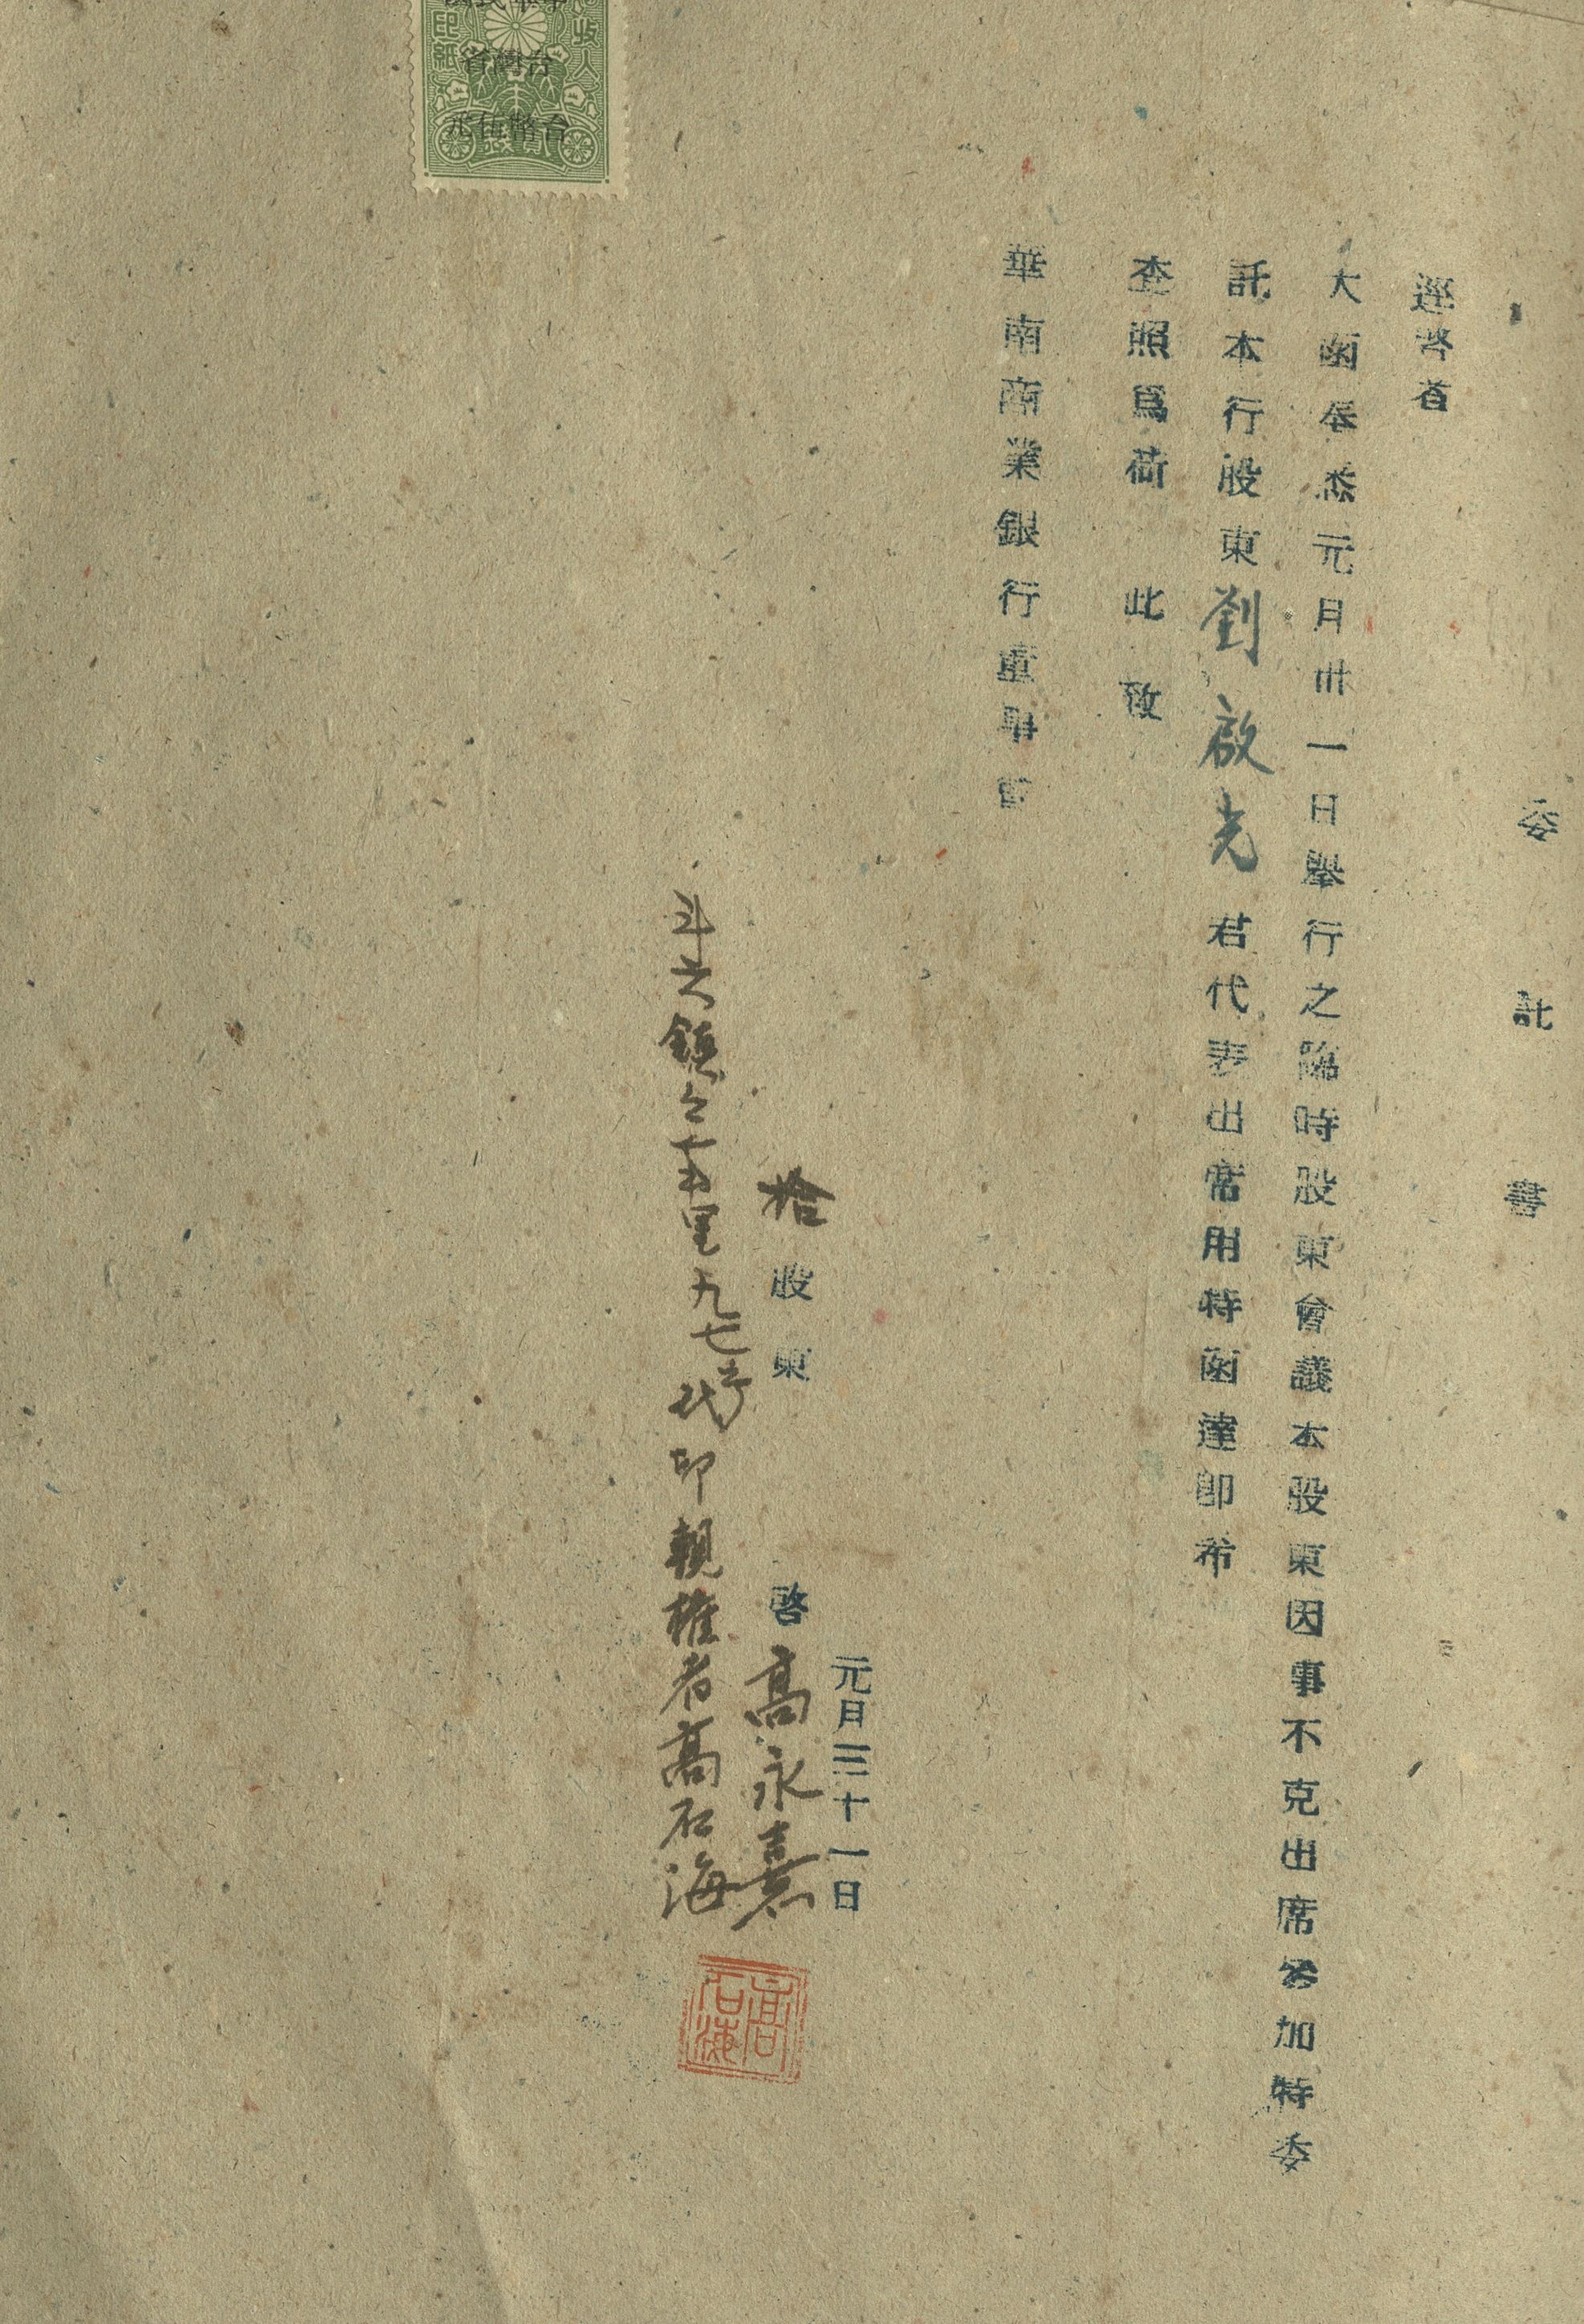 委託書
逕啓者
大函奉悉元月卅一日舉行之臨時股東會議本股東因事不克出席參加特委
託本行股東劉啟光君代表出席用特函達卽希
查照爲荷 此致
華南商業銀行董事會
元月三十一日
拾股東 啓 高永嘉
斗六鎮 里九七號 印親權者高石海
高石海
收入印紙
台灣省
台幣伍元